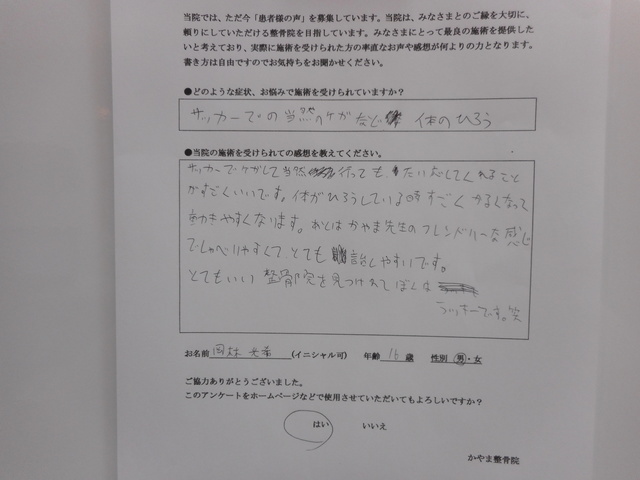 当院では、ただ今「患者様の声」を募集しています。当院は、みなさまとのご縁を大切に、
頼りにしていただける整骨院を目指しています。みなさまにとって最良の施術を提供した
いと考えており、実際に施術を受けられた方の率直なお声や感想が何よりの力となります。
書き方は自由ですのでお気持ちをお聞かせください。
●どのような症状、お悩みで施術を受けられていますか？
サッカーでの当然のケガなど 体のひろう
●当院の施術を受けられての感想を教えてください。
サッカーでケガして当然行っても、たい応してくれること
がすごくいいです。体がひろうしている時すごくかるくなって
動きやすくなります。あとはかやま先生のフレンドリーな感じ
でしゃべりやすくてとても 話しやすいです。
とてもいい整骨院を見つけれてぼくは
ラッキーです。笑
お名前 (イニシャル可) 年齢 16 歳 性別 男・女
ご協力ありがとうございました。
このアンケートをホームページなどで使用させていただいてもよろしいですか？
はい いいえ
かやま整骨院